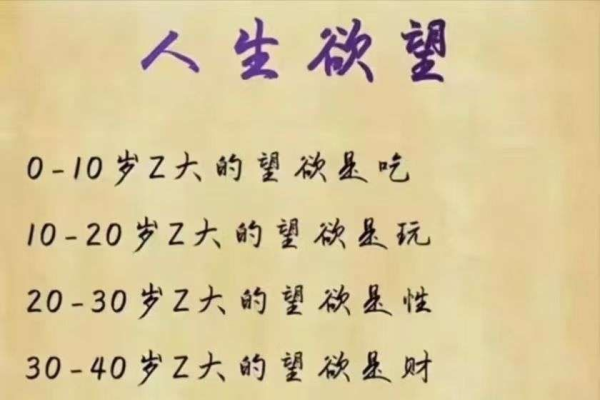 人生欲望
0-10岁Z大的望欲是吃
10-20岁Z大的望欲是玩
20-30岁Z大的望欲是性
30-40岁Z大的望欲是财